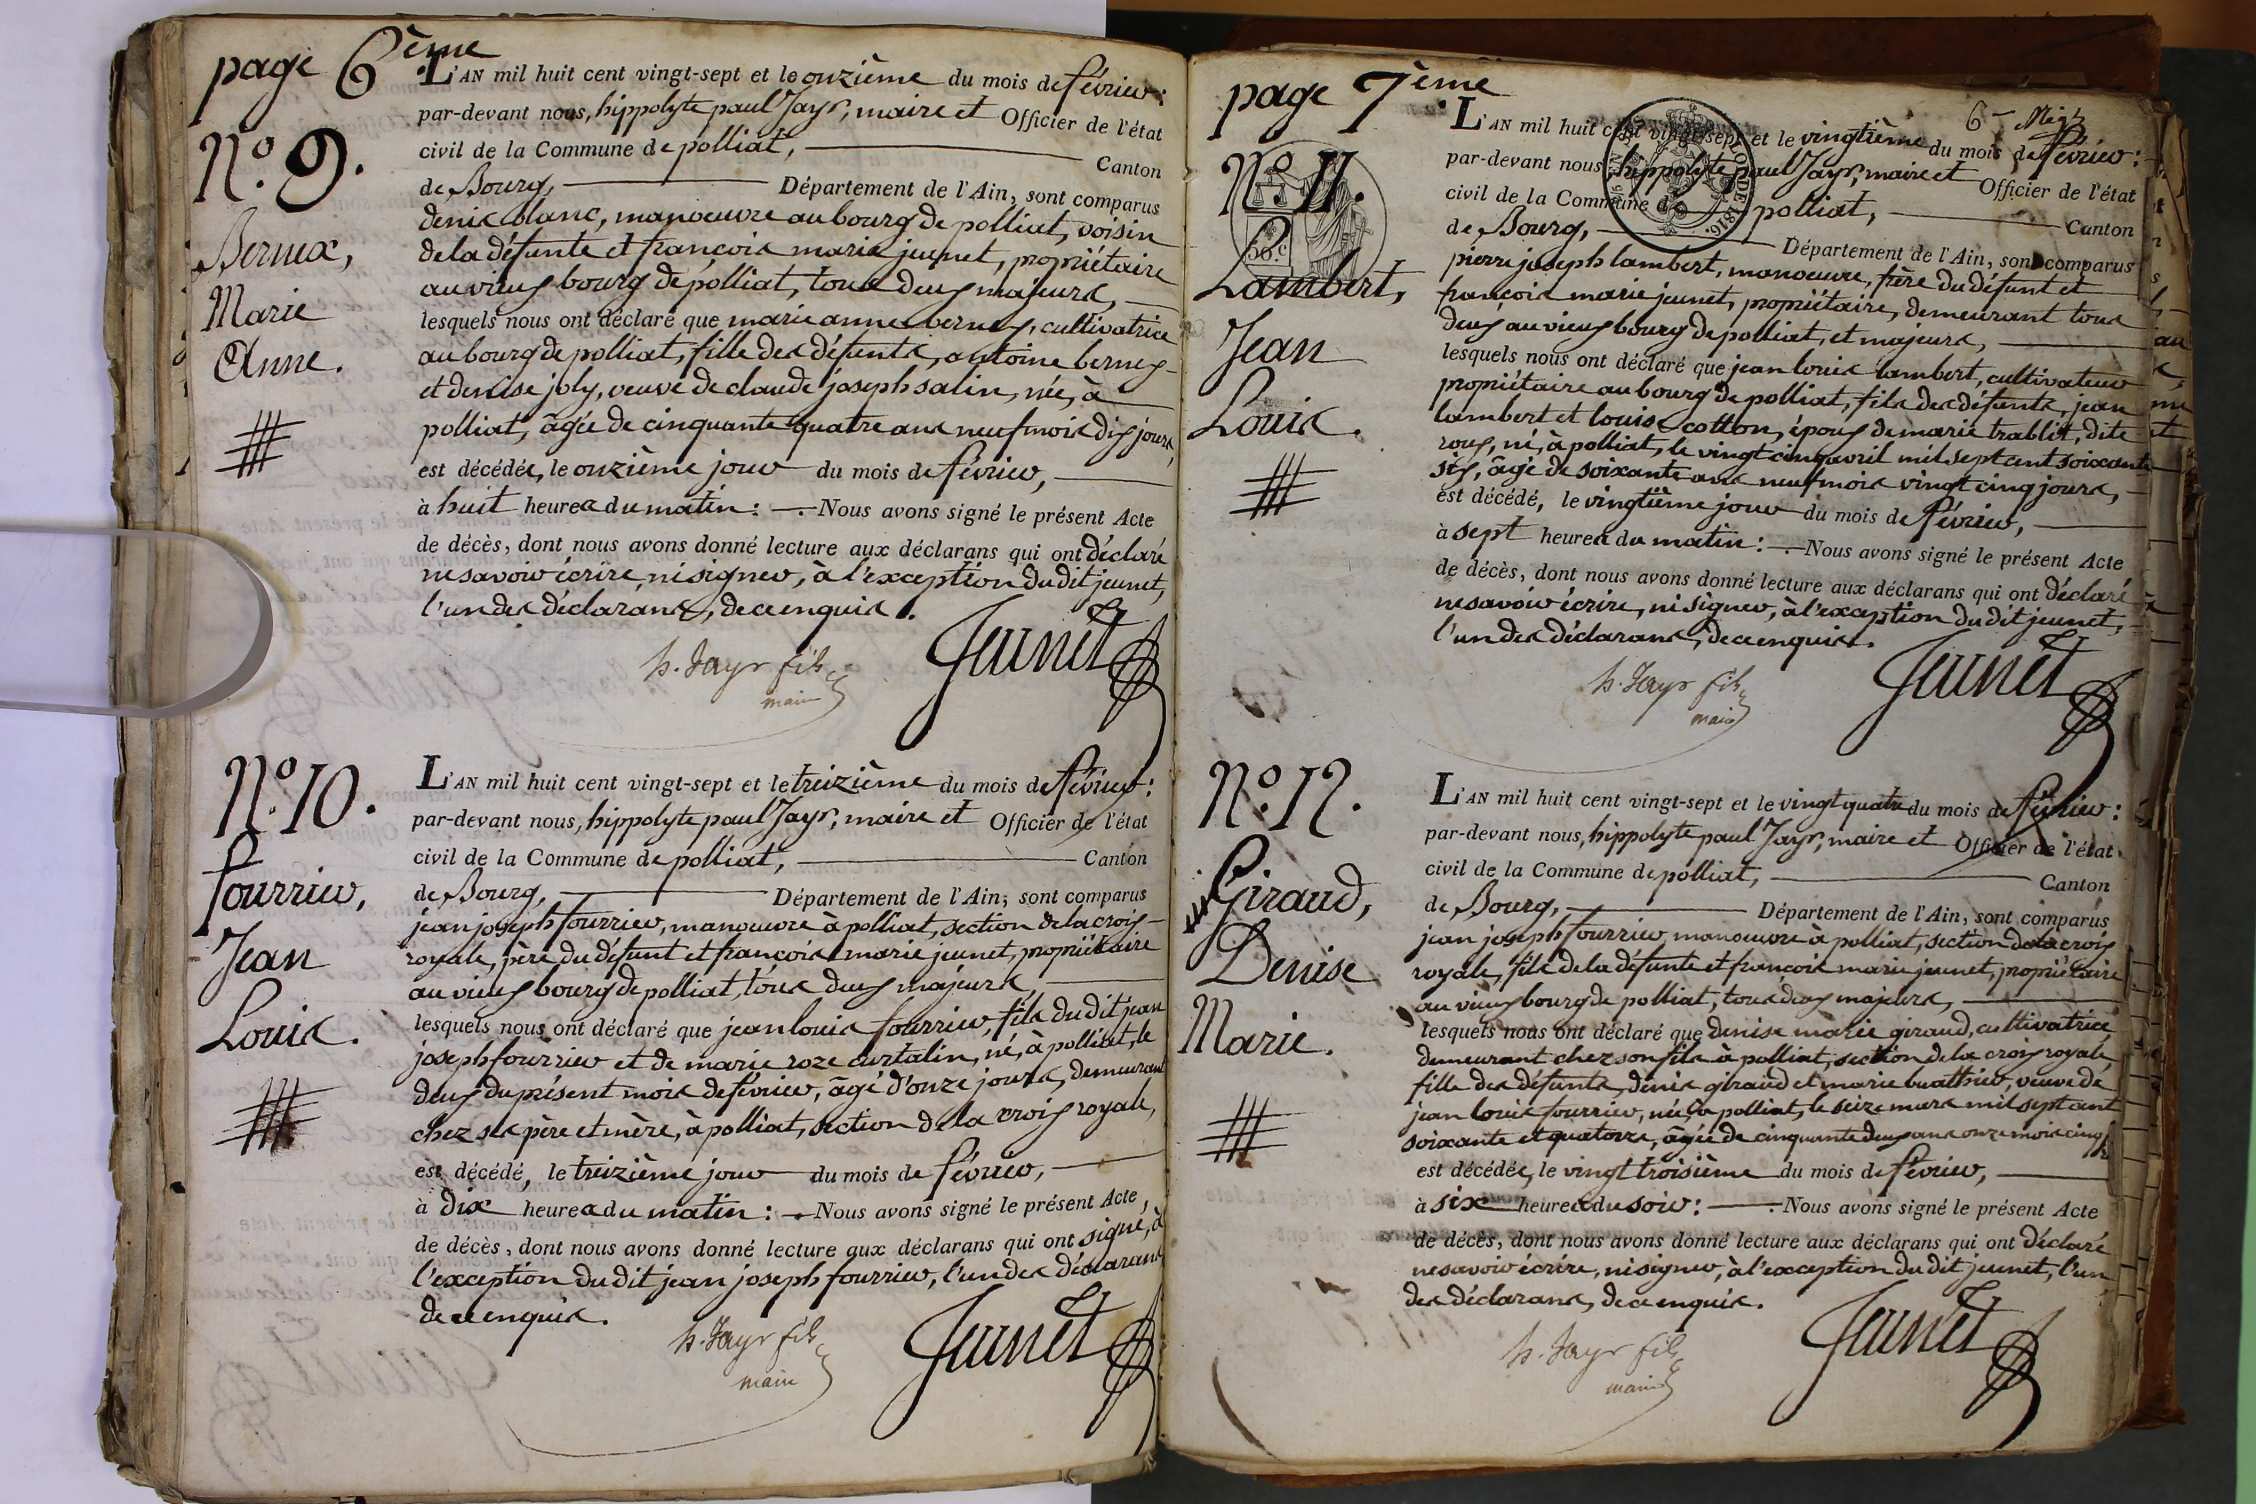 page 6ème
N.º 9.
Bernex,
Marie
Anne.
L'AN mil huit cent vingt-sept et le onzième du mois de février:
par-devant nous, hippolyte paul Jayr, maire et Officier de l'état
civil de la Commune de polliat, Canton
de Bourg, Département de l'Ain, sont comparus
denis blanc, manoeuvre au bourg de polliat, voisin
de la défunte et françois marie jeunet, propriétaire
au vieux bourg de polliat, tous deux majeurs,
lesquels nous ont déclaré que marie anne bernex, cultivatrice
au bourg de polliat, fille des défunts, antoine bernex
et denise joly, veuve de claude joseph salin, née, à
polliat, âgée de cinquante quatre ans neuf mois dix jours,
est décédée, le onzième jour du mois de février,
à huit heures du matin: Nous avons signé le présent Acte
de décès, dont nous avons donné lecture aux déclarans qui ont déclaré
ne savoir écrire, ni signer, à l'exception du dit jeunet,
l'un des déclarans, de ce enquis.
h. Jayr fils
maire
Jeunet
N.º 10.
fourrier,
Jean
Louis.
L'AN mil huit cent vingt-sept et le treizième du mois de février:
par-devant nous, hippolyte paul Jayr, maire et Officier de l'état
civil de la Commune de polliat, Canton
de Bourg, Département de l'Ain, sont comparus
jean joseph fourrier, manoeuvre à polliat, section de la croix
royale, père du défunt et françois marie jeunet, propriétaire
au vieux bourg de polliat, tous deux majeurs,
lesquels nous ont déclaré que jean louis fourrier, fils du dit jean
joseph fourrier et de marie roze curtalin, né, à polliat, le
deux du présent mois de février, âgé d'onze jours, demeurant
chez ses père et mère, à polliat, section de la croix royale,
est décédé, le treizième jour du mois de février,
à dix heures du matin: Nous avons signé le présent Acte,
de décès, dont nous avons donné lecture aux déclarans qui ont signé, à
l'exception du dit jean joseph fourrier, l'un des déclarans
de ce enquis.
h. Jayr fils
maire
Jeunet
page 7ème
N.º 11.
50.c
Lambert,
Jean
Louis.
L'AN mil huit cent vingt-sept et le vingtième du mois de février:
par-devant nous, hippolyte paul Jayr, maire et Officier de l'état
civil de la Commune de polliat, Canton
de Bourg, Département de l'Ain, sont comparus
pierre joseph lambert, manoeuvre, frère du défunt et
françois marie jeunet, propriétaire, demeurant tous
deux au vieux bourg de polliat, et majeurs,
lesquels nous ont déclaré que jean louis lambert, cultivateur
propriétaire au bourg de polliat, fils des défunts, jean
lambert et louise cotton, époux de marie trablit, dite
roux, né, à polliat, le vingt cinq avril mil sept cent soixante
six, âgé de soixante ans neuf mois vingt cinq jours,
est décédé, le vingtième jour du mois de février,
à sept heures du matin: Nous avons signé le présent Acte
de décès, dont nous avons donné lecture aux déclarans qui ont déclaré
ne savoir écrire, ni signer, à l'exception du dit jeunet,
l'un des déclarans, de ce enquis.
h. Jayr fils
maire
Jeunet
N.º 12.
Giraud,
Denise
Marie.
L'AN mil huit cent vingt-sept et le vingt quatre du mois de février:
par-devant nous, hippolyte paul Jayr, maire et Officier de l'état
civil de la Commune de polliat, Canton
de Bourg, Département de l'Ain, sont comparus
jean joseph fourrier, manoeuvre à polliat, section de la croix
royale, fils de la défunte et françois marie jeunet, propriétaire
au vieux bourg de polliat, tous deux majeurs,
lesquels nous ont déclaré que denise marie giraud, cultivatrice
demeurant chez son fils à polliat, section de la croix royale
fille des défunts, denis giraud et marie buathier, veuve de
jean louis fourrier, née, à polliat, le seize mars mil sept cent
soixante et quatorze, âgée de cinquante deux ans onze mois cinq
est décédée, le vingt troisième du mois de février,
à six heures du soir: Nous avons signé le présent Acte
de décès, dont nous avons donné lecture aux déclarans qui ont déclaré
ne savoir écrire, ni signer, à l'exception du dit jeunet, l'un
des déclarans, de ce enquis.
h. Jayr fils
maire
Jeunet